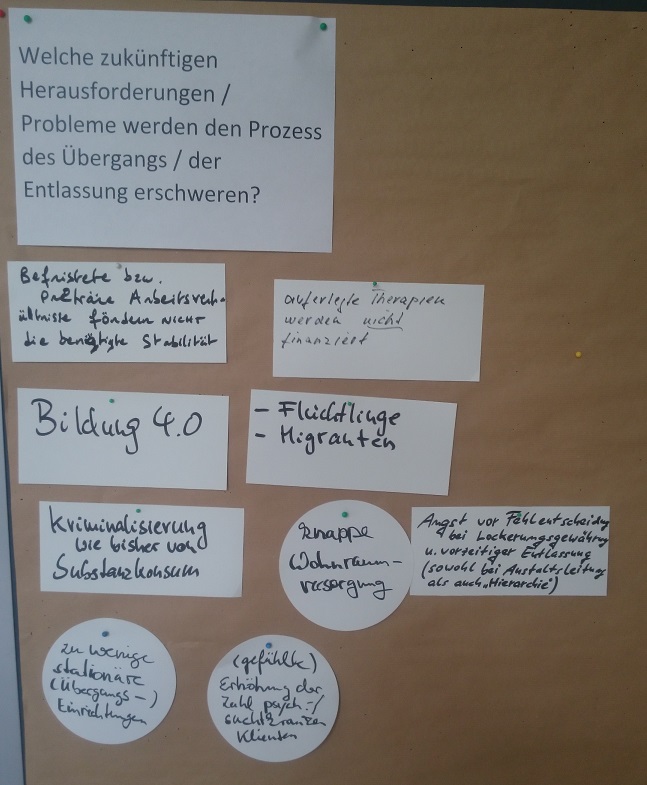 Welche zukünftigen
Herausforderungen /
Probleme werden den Prozess
des Übergangs / der
Entlassung erschweren?
Befristete bzw.
prekäre Arbeitsverh-
ältnisse fördern NICHT
die benötigte Stabilität
auferlegte Therapien
werden nicht
finanziert
Bildung 4.0
- Flüchtlinge
- Migranten
Kriminalisierung
wie bisher von
Substanzkonsum
knappe
Wohnraum-
versorgung
Angst vor Fehlentscheidung
bei Lockerungsgewährung
u. vorzeitiger Entlassung
(sowohl bei Anstaltsleitung
als auch „Hierarchie")
zu wenige
stationäre
(Übergangs-)
Einrichtungen
(gefühlte)
Erhöhung der
Zahl psych.-/
suchtkranken
Klienten